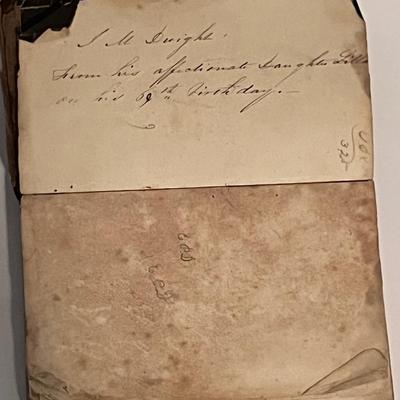 S M Dwight.
From his affectionate Daughter
on his 69th birthday.—
325